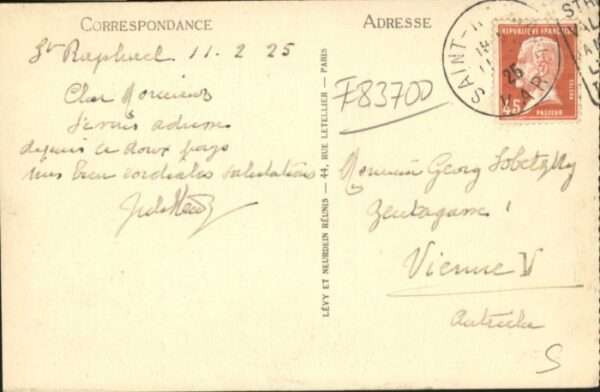 CORRESPONDANCE
ADRESSE
St Raphael 11.2 25
Cher Monsieur
Je vous adresse
depuis ce doux pays
mes bien cordiales salutations
LÉVY ET NEURDEIN RÉUNIS — 44, RUE LETELLIER — PARIS
F83700
SAINT-
25
VAR
RÉPUBLIQUE FRANÇAISE
45
PASTEUR
POSTES
Monsieur Georg Lobetzky
Zentagasse 1
Vienne V
Autriche
S